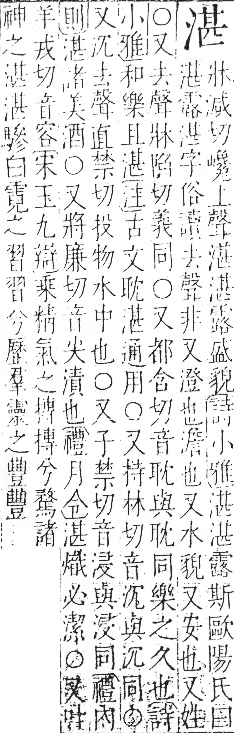 湛
牀減切巉上聲湛湛露盛貌詩小雅湛湛露斯歐陽氏曰
湛露湛字俗讀去聲非又澄也澹也又水貌又安也又姓
○又去聲牀陷切義同○又都含切音耽與耽同樂之久也詩
小雅和樂且湛註古文耽湛通用○又持林切音沉與沉同○
又沉去聲直禁切投物水中也○又子禁切音浸與浸同禮內
則湛諸美酒○又將廉切音尖漬也禮月令湛熾必潔○又叶
羊戎切音容宋玉九辯乘精氣之摶摶兮騖諸
神之湛湛驂白霓之習習兮歷羣靈之豐豐